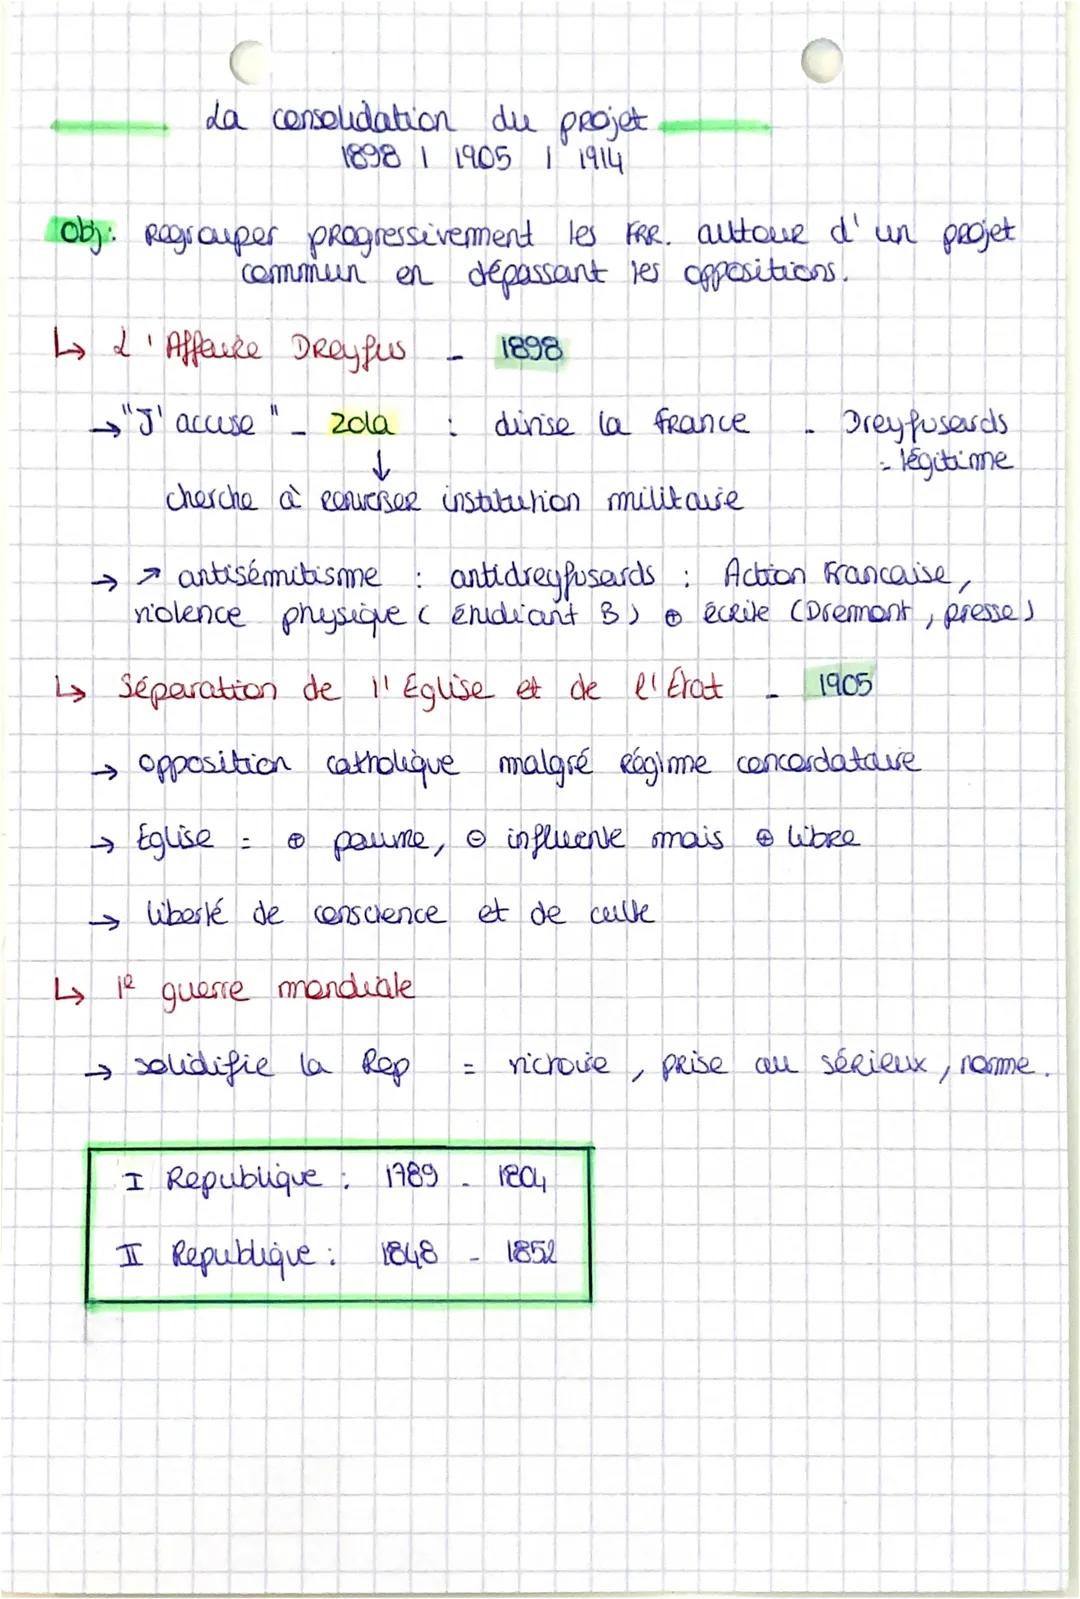 La consolidation du projet
1898 | 1905 | 1914
Obj: Regrouper progressivement les FRR. autour d'un projet
commun en dépassant les oppositions.
↳ L'Affaire Dreyfus - 1898
→ "J'accuse" - Zola : divise la France - Dreyfusards
= légitime
↓
cherche à renverser institution militaire
→ ↗ antisémitisme : antidreyfusards : Action Francaise,
violence physique ( étudiant B) ⊕ écrite (Dremont, presse)
↳ Séparation de l'Eglise et de l'État - 1905
→ opposition catholique malgré régime concordataire
→ Eglise = ⊕ pauvre, ⊖ influente mais ⊕ libre
→ liberté de conscience et de culte
↳ 1e guerre mondiale
→ solidifie la Rep = victoire, prise au sérieux, norme.
I Republique : 1789 - 1804
II Republique : 1848 - 1852